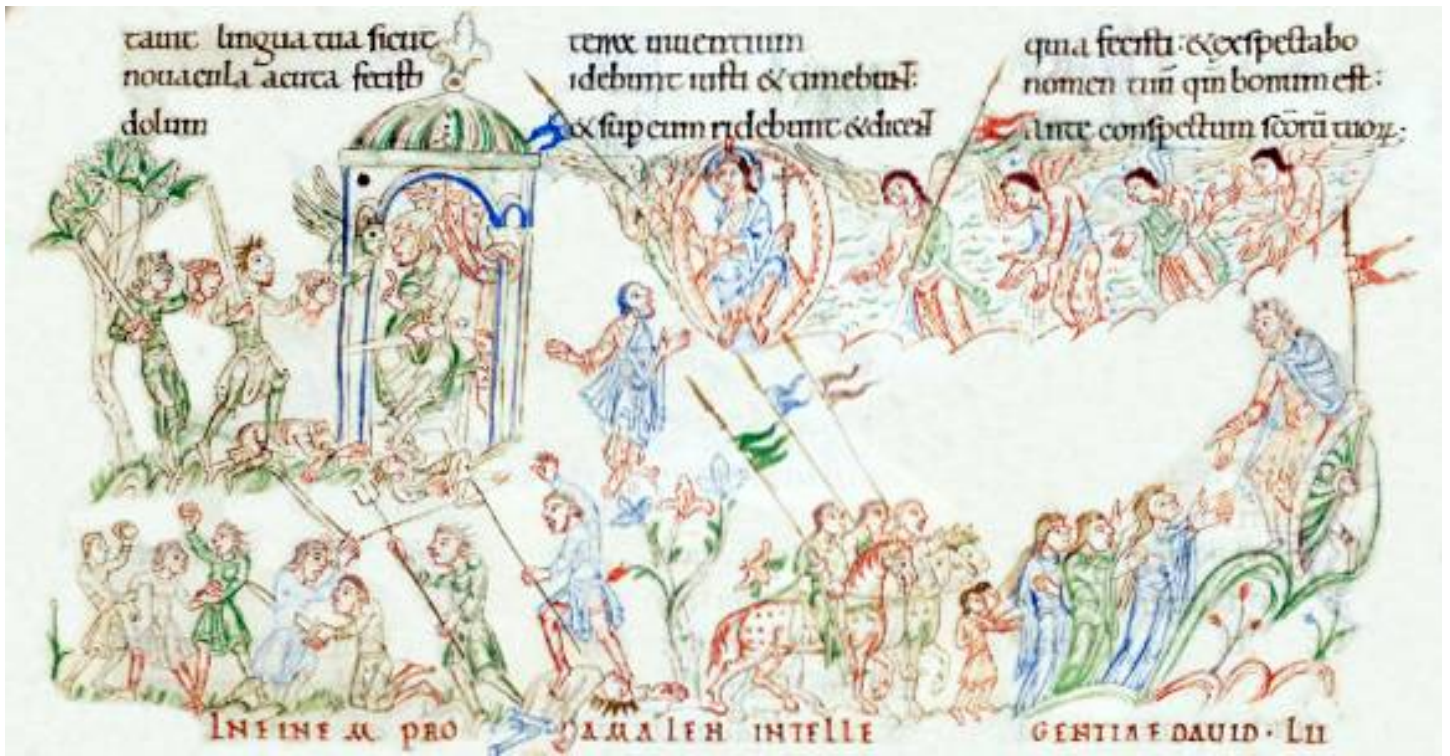 tauit lingua tua sicut
nouacula acuta fecisti
dolum
terra uiuentium
idebunt iusti & timebunt:
& sup eum ridebunt & dicent
quia fecisti: & exspectabo
nomen tuū qm̄ bonum est:
ante conspectum scōrū tuoꝝ:
IN FINEM PRO AMALEH INTELLE GENTIAE DAUID · LII